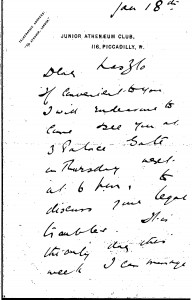 Jan 18th
TELEGRAPHIC ADDRESS,
JUNIOR ATHENÆUM CLUB,
116, PICCADILLY, W.
Dear Laszlo
If convenient to you
I will endeavour to
come & see you at
3 Palace Gate
on Thursday next
at 6 hrs, to
discuss your legal
troubles. It is
the only day this
week I can manage